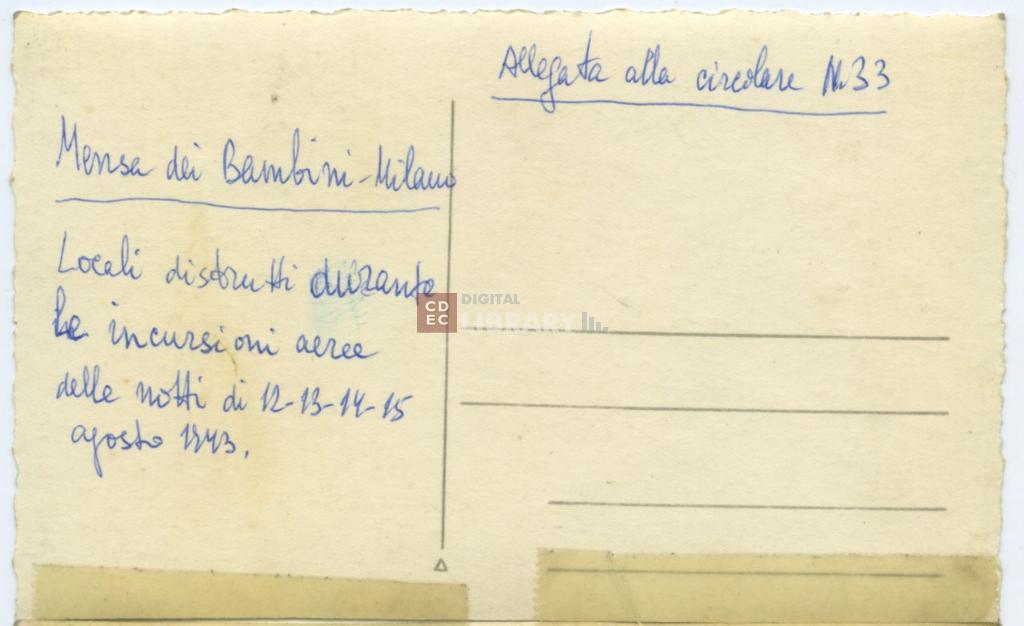 Allegata alla circolare N. 33
Mensa dei Bambini - Milano
Locali distrutti durante
le incursioni aeree
delle notti di 12-13-14-15
agosto 1943.
CD
EC
DIGITAL
LIBRARY